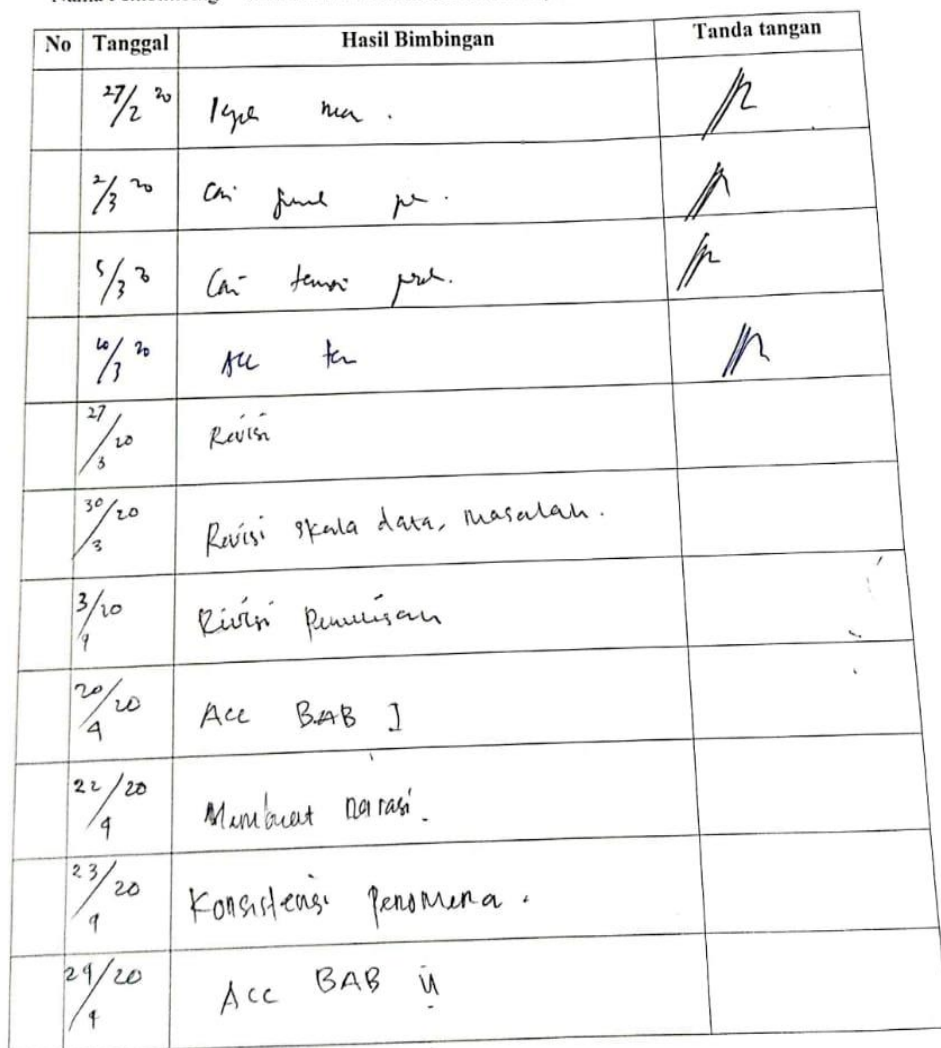 No Tanggal Hasil Bimbingan Tanda tangan
27/2 20
2/3 20 Cari
5/3 20 Cari
10/3 20 Acc
27/3 20 Revisi
30/3 20 Revisi skala data, masalah.
3/4 20 Revisi Penulisan
20/4 20 Acc BAB I
22/4 20 Membuat narasi.
23/4 20 Konsistensi Penomena.
29/4 20 Acc BAB II